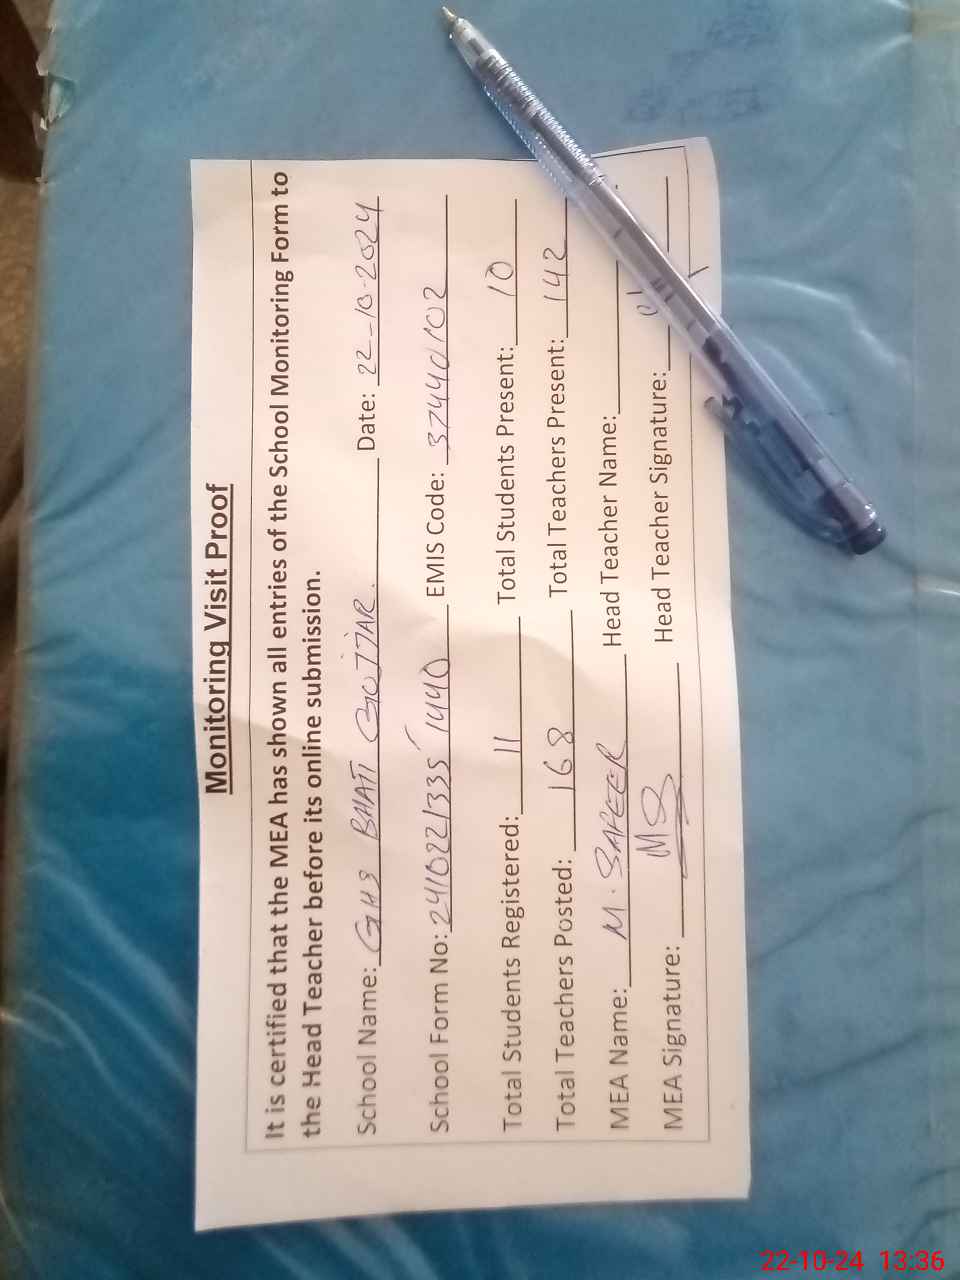 Monitoring Visit Proof
It is certified that the MEA has shown all entries of the School Monitoring Form to
the Head Teacher before its online submission.
School Name: GHS BHATI GOJJAR. Date: 22-10-2024
School Form No: 241022/335/1440 EMIS Code: 37440102
Total Students Registered: 11 Total Students Present: 10
Total Teachers Posted: 168 Total Teachers Present: 142
MEA Name: M. SAFEER Head Teacher Name:
MEA Signature: MS Head Teacher Signature:
22-10-24 13:36